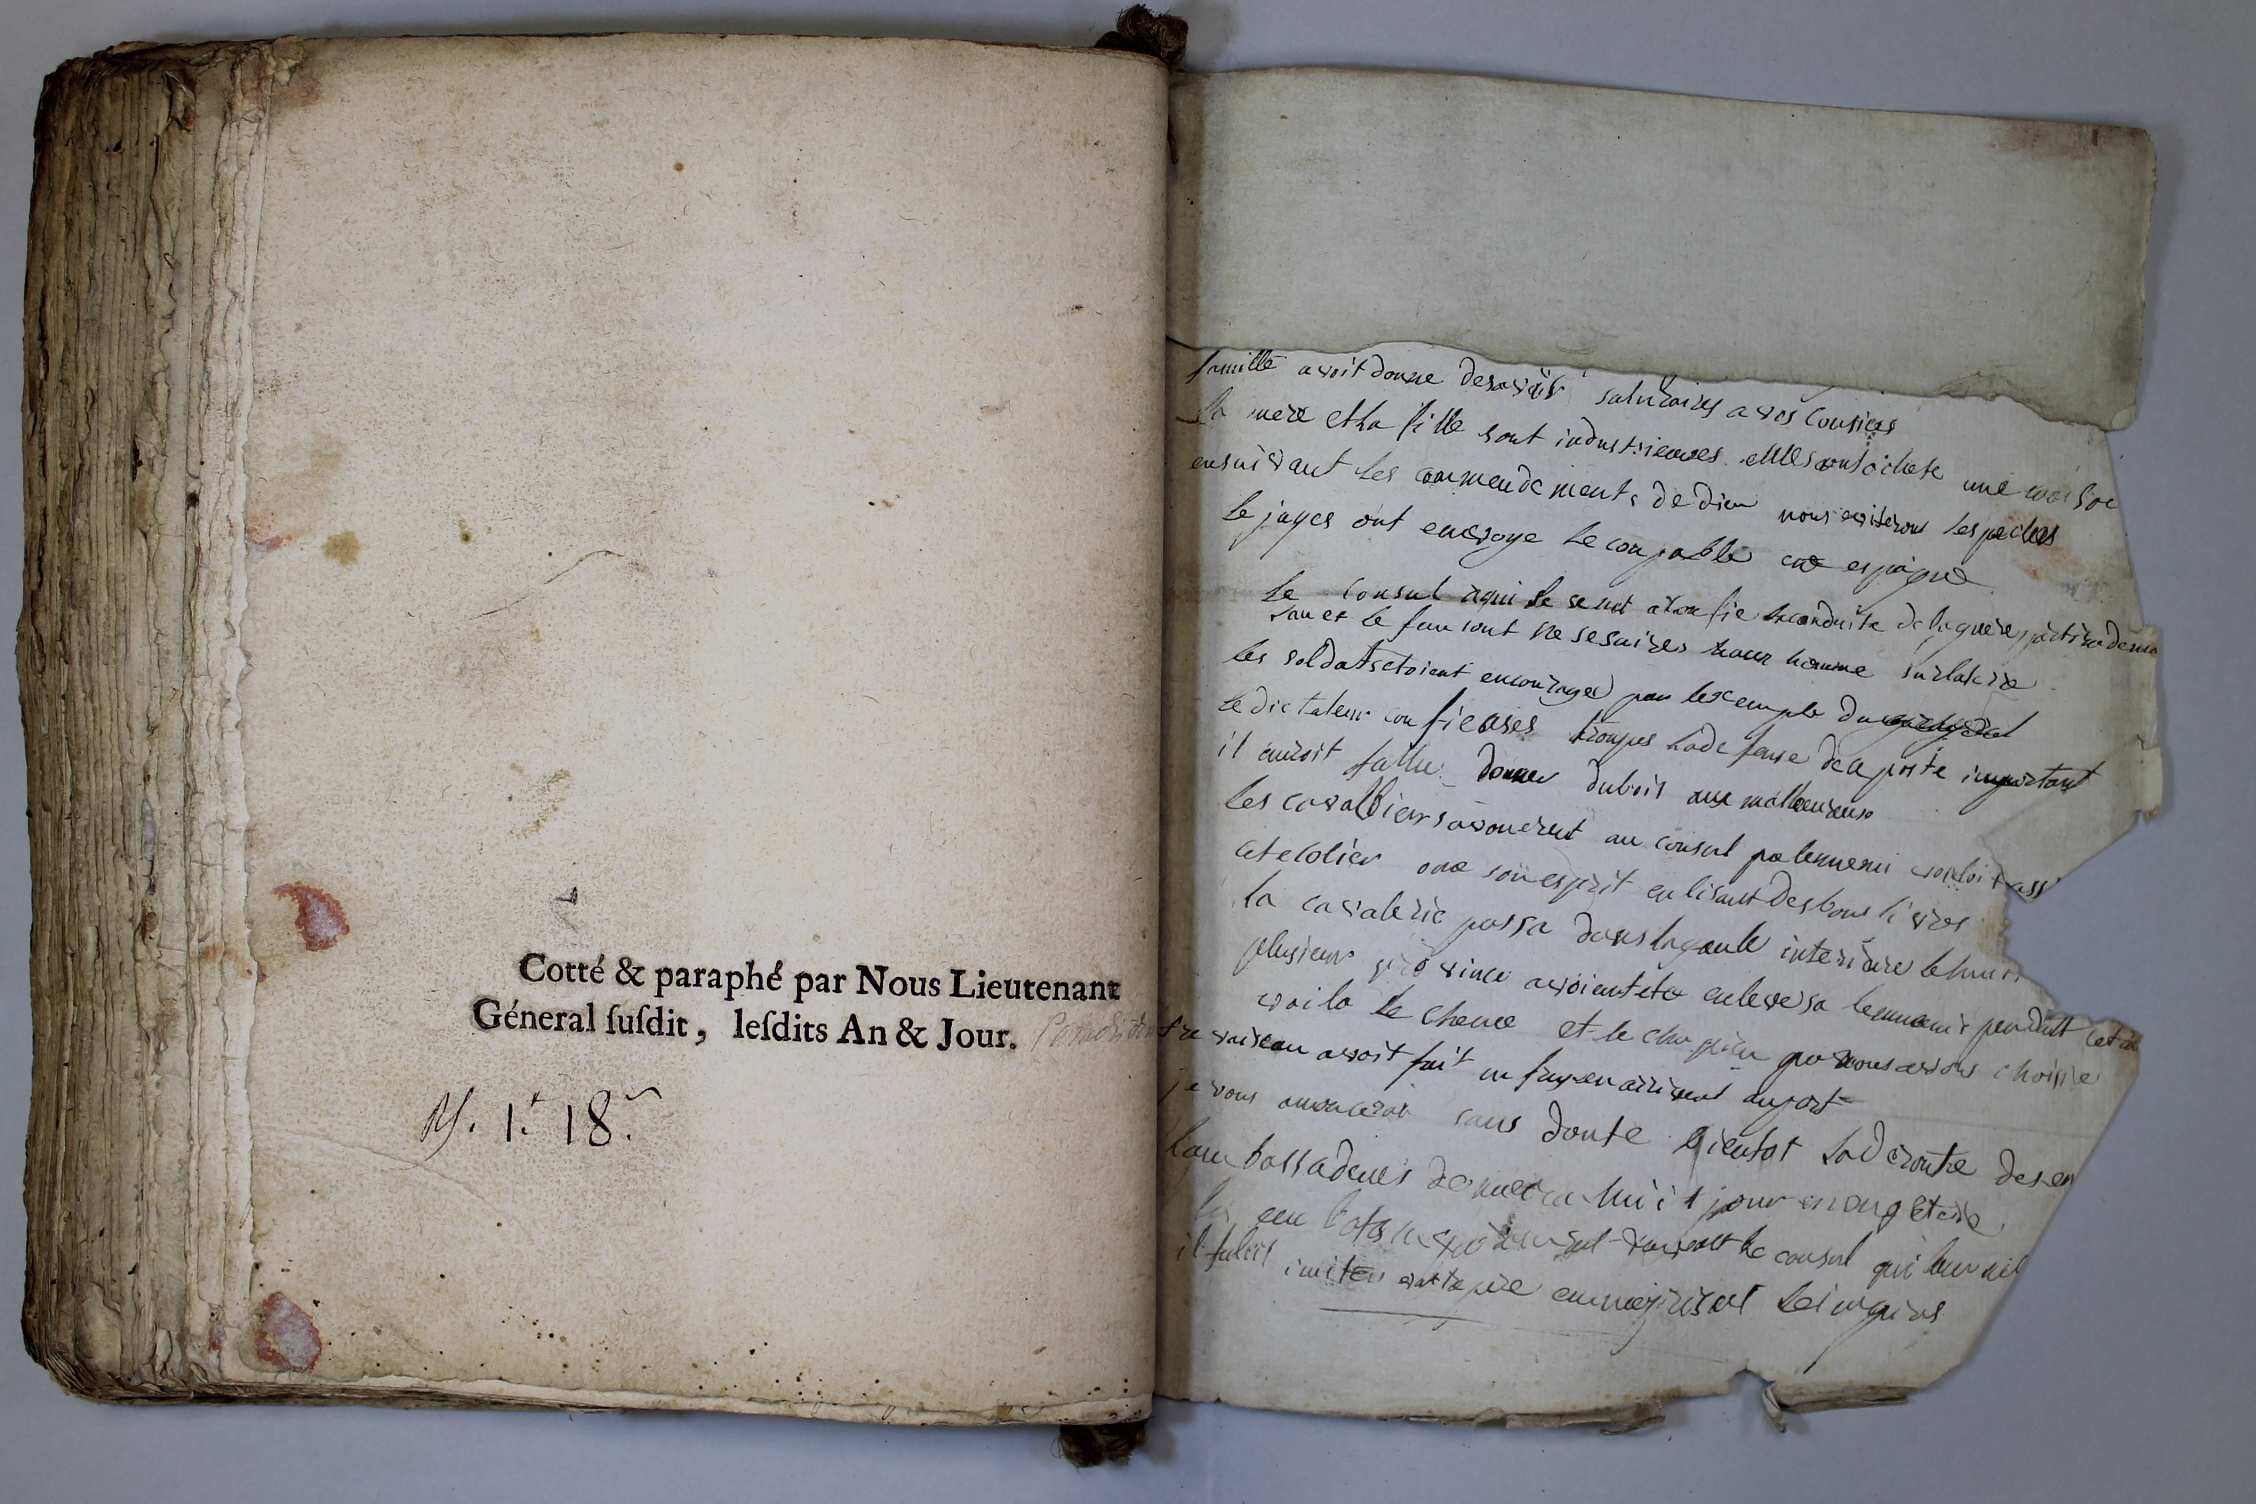 Cotté & paraphé par Nous Lieutenant
Géneral ſuſdit, leſdits An & Jour.
1. 18.
famille avoit donne des avis salutaires a vos Cousiens
la mere et la fille sont industrieuses elles ont achete une maison
ensuivant les commendements de dieu nous eviterons les peches
le juges ont envoye le coupable en espagne
le Consul aqui le senat a confie la conduite de la guere
leau et le feu sont nesesaires pour homme sur la tere
les soldats etoient encourages par lexemple du
le dictateur confie a ses troupes la defense de ce poste important
il auroit fallu donner du bois aux malheureux
les cavalliers avouerent au consul que lennemi vouloit
cet ecolier orne son esprit en lisant des bons livres
la cavalerie passa dans la gaule interieure
plusieurs province avoient ete enleve a lennemi pendant cet
voila le chene et le que nous avons choisie
vaiseau avoit fait en arrivant au port
je vous anoncerai sans doute bientot la deroute des en
lambassadeur demeura huit jour en
consul qui leur
il faloit imiter votre pere en meprisant